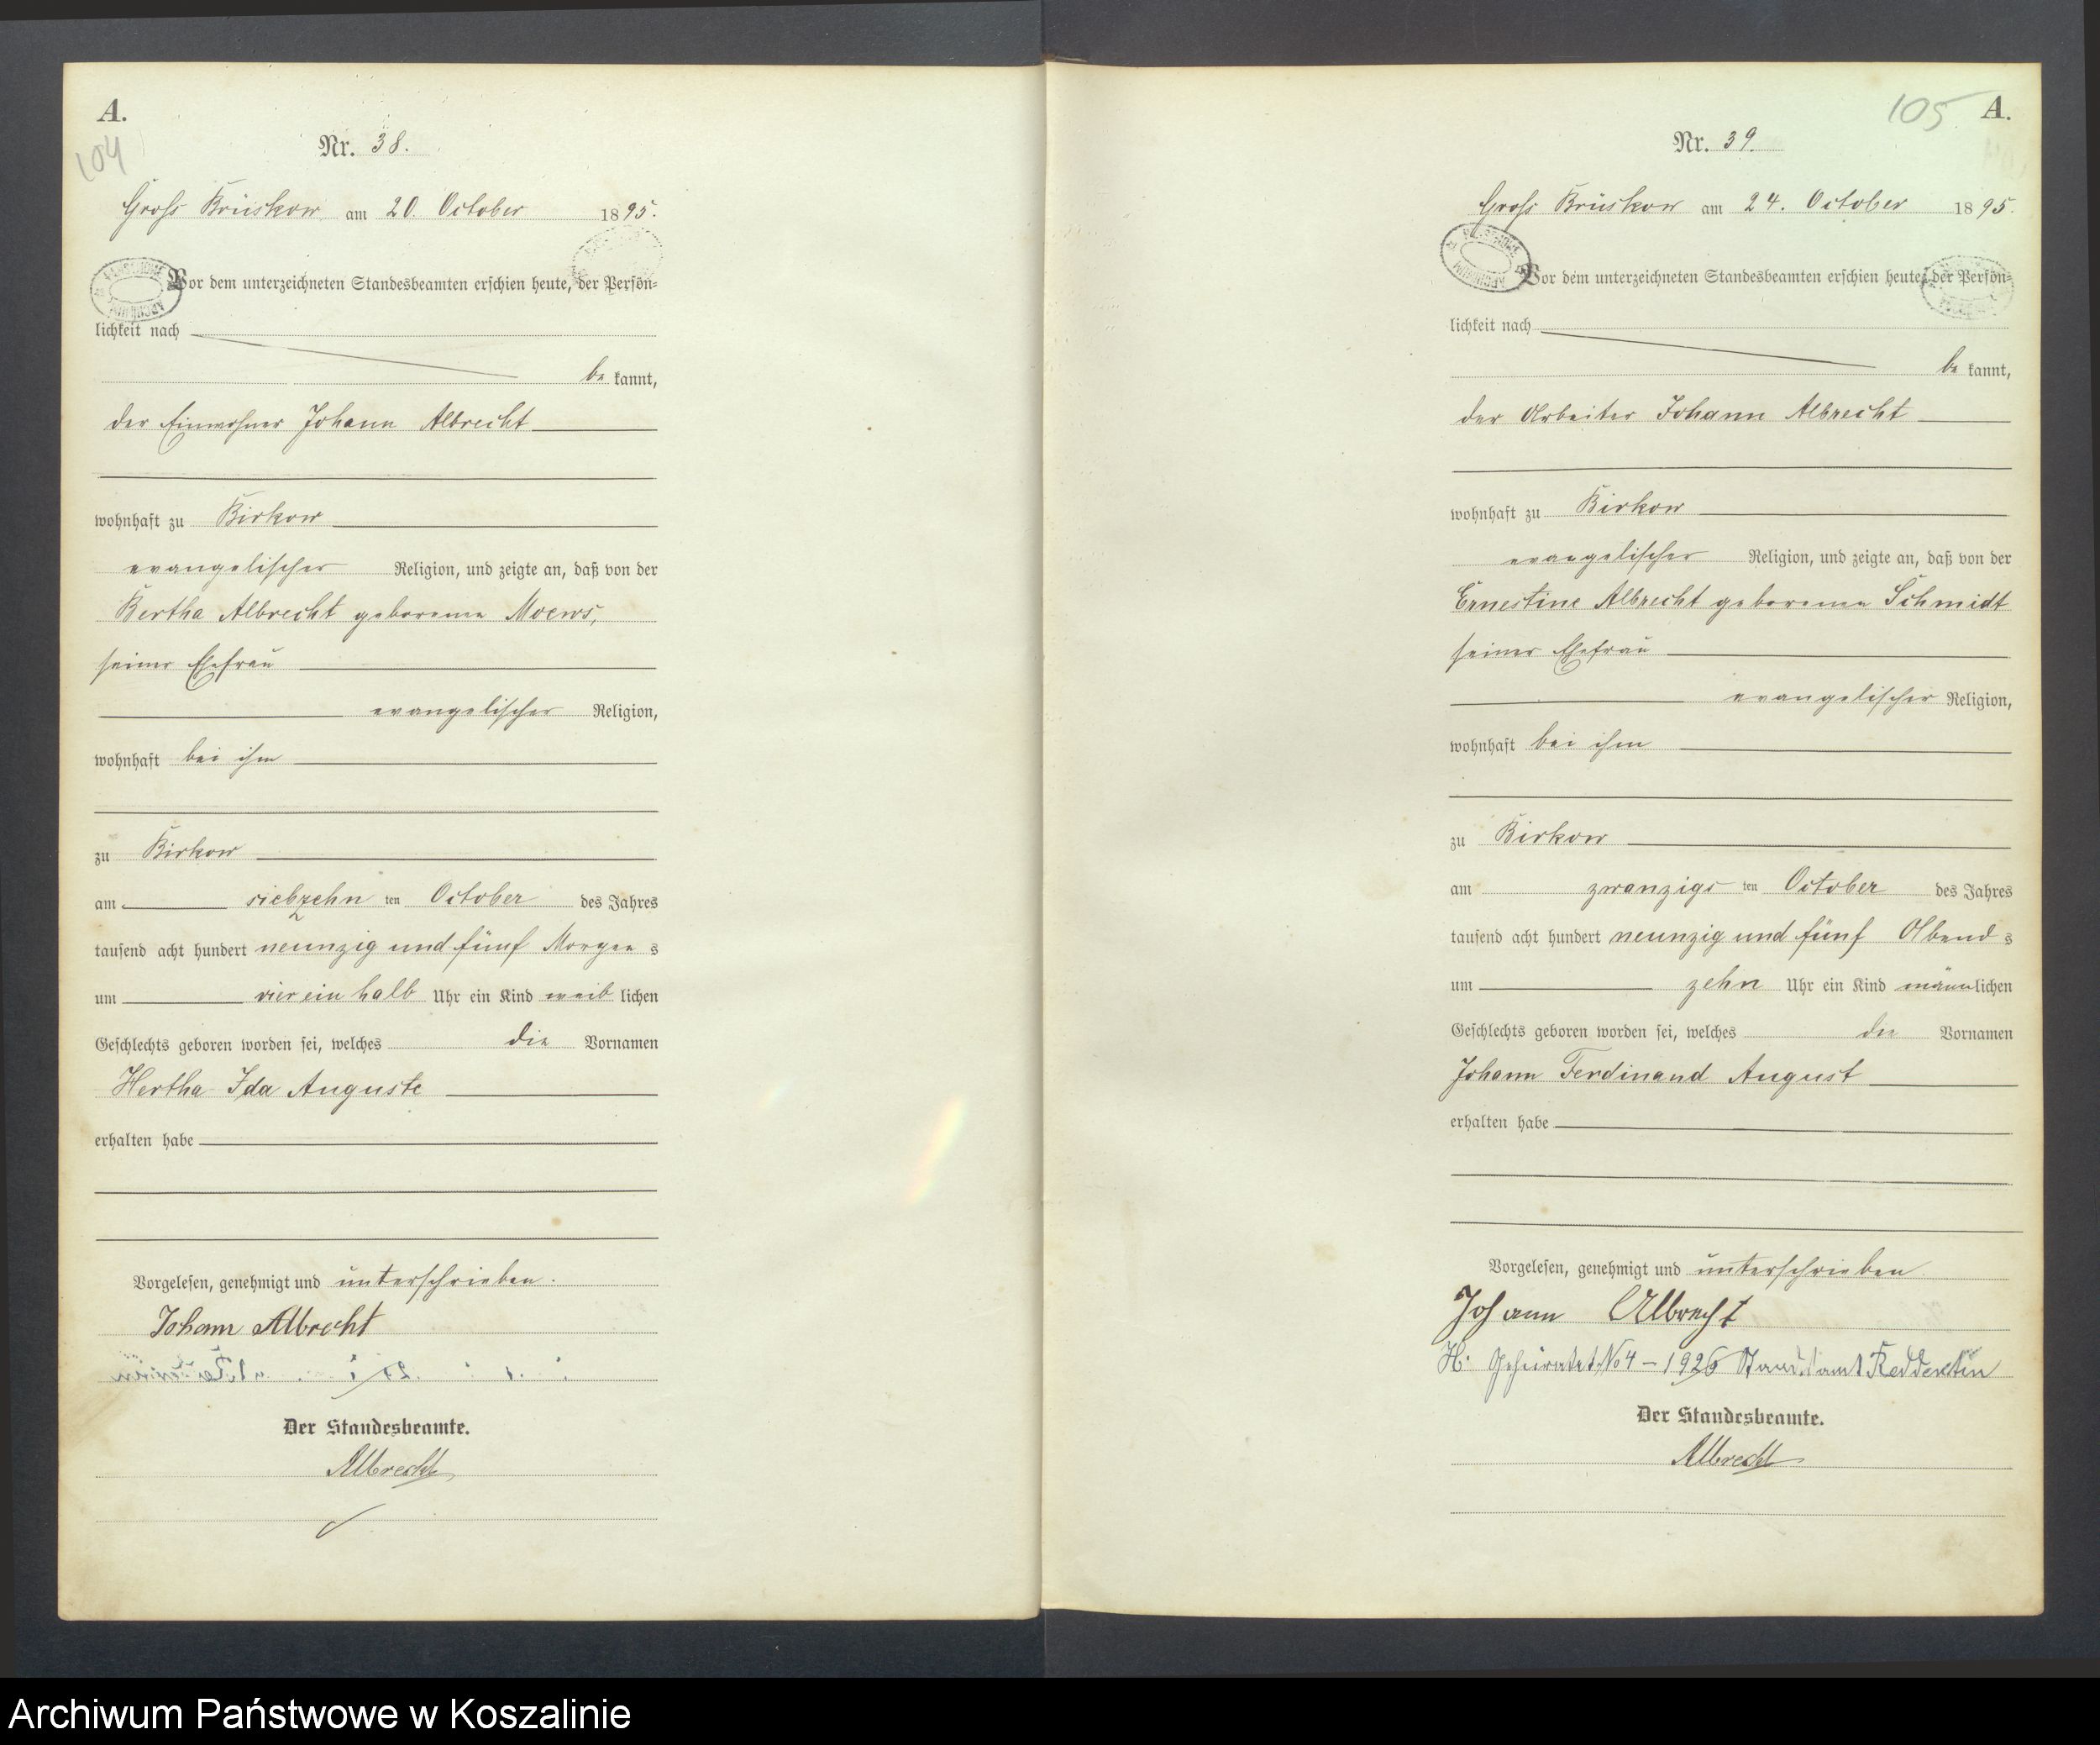 A.
104
Nr. 38.
Gross Brüskow am 20. October 1895.
Vor dem unterzeichneten Standesbeamten erschien heute, der Persön-
lichkeit nach
be kannt,
der Einwohner Johann Albrecht
wohnhaft zu Birkow
evangelischer Religion, und zeigte an, daß von der
Bertha Albrecht geborenen Moews,
seiner Ehefrau
evangelischer Religion,
wohnhaft bei ihm
zu Birkow
am siebzehn ten October des Jahres
tausend acht hundert neunzig und fünf Morgen s
um vier ein halb Uhr ein Kind weib lichen
Geschlechts geboren worden sei, welches die Vornamen
Hertha Ida Auguste
erhalten habe
Vorgelesen, genehmigt und unterschrieben.
Johann Albrecht
Der Standesbeamte.
Albrecht
105
A.
Nr. 39.
Gross Brüskow am 24. October 1895.
Vor dem unterzeichneten Standesbeamten erschien heute, der Persön-
lichkeit nach
be kannt,
der Arbeiter Johann Albrecht
wohnhaft zu Birkow
evangelischer Religion, und zeigte an, daß von der
Ernestine Albrecht geborenen Schmidt
seiner Ehefrau
evangelischer Religion,
wohnhaft bei ihm
zu Birkow
am zwanzigs ten October des Jahres
tausend acht hundert neunzig und fünf Abend s
um zehn Uhr ein Kind männlichen
Geschlechts geboren worden sei, welches die Vornamen
Johann Ferdinand August
erhalten habe
Vorgelesen, genehmigt und unterschrieben
Johann Albrecht
H. Geheiratet No 4 - 1926 Standesamt Reddentin
Der Standesbeamte.
Albrecht
Archiwum Państwowe w Koszalinie